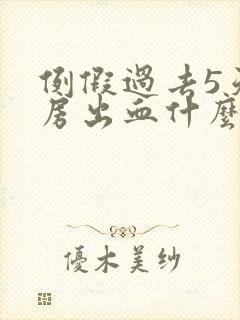 例假過去5天
房出血什麼
優木美紗